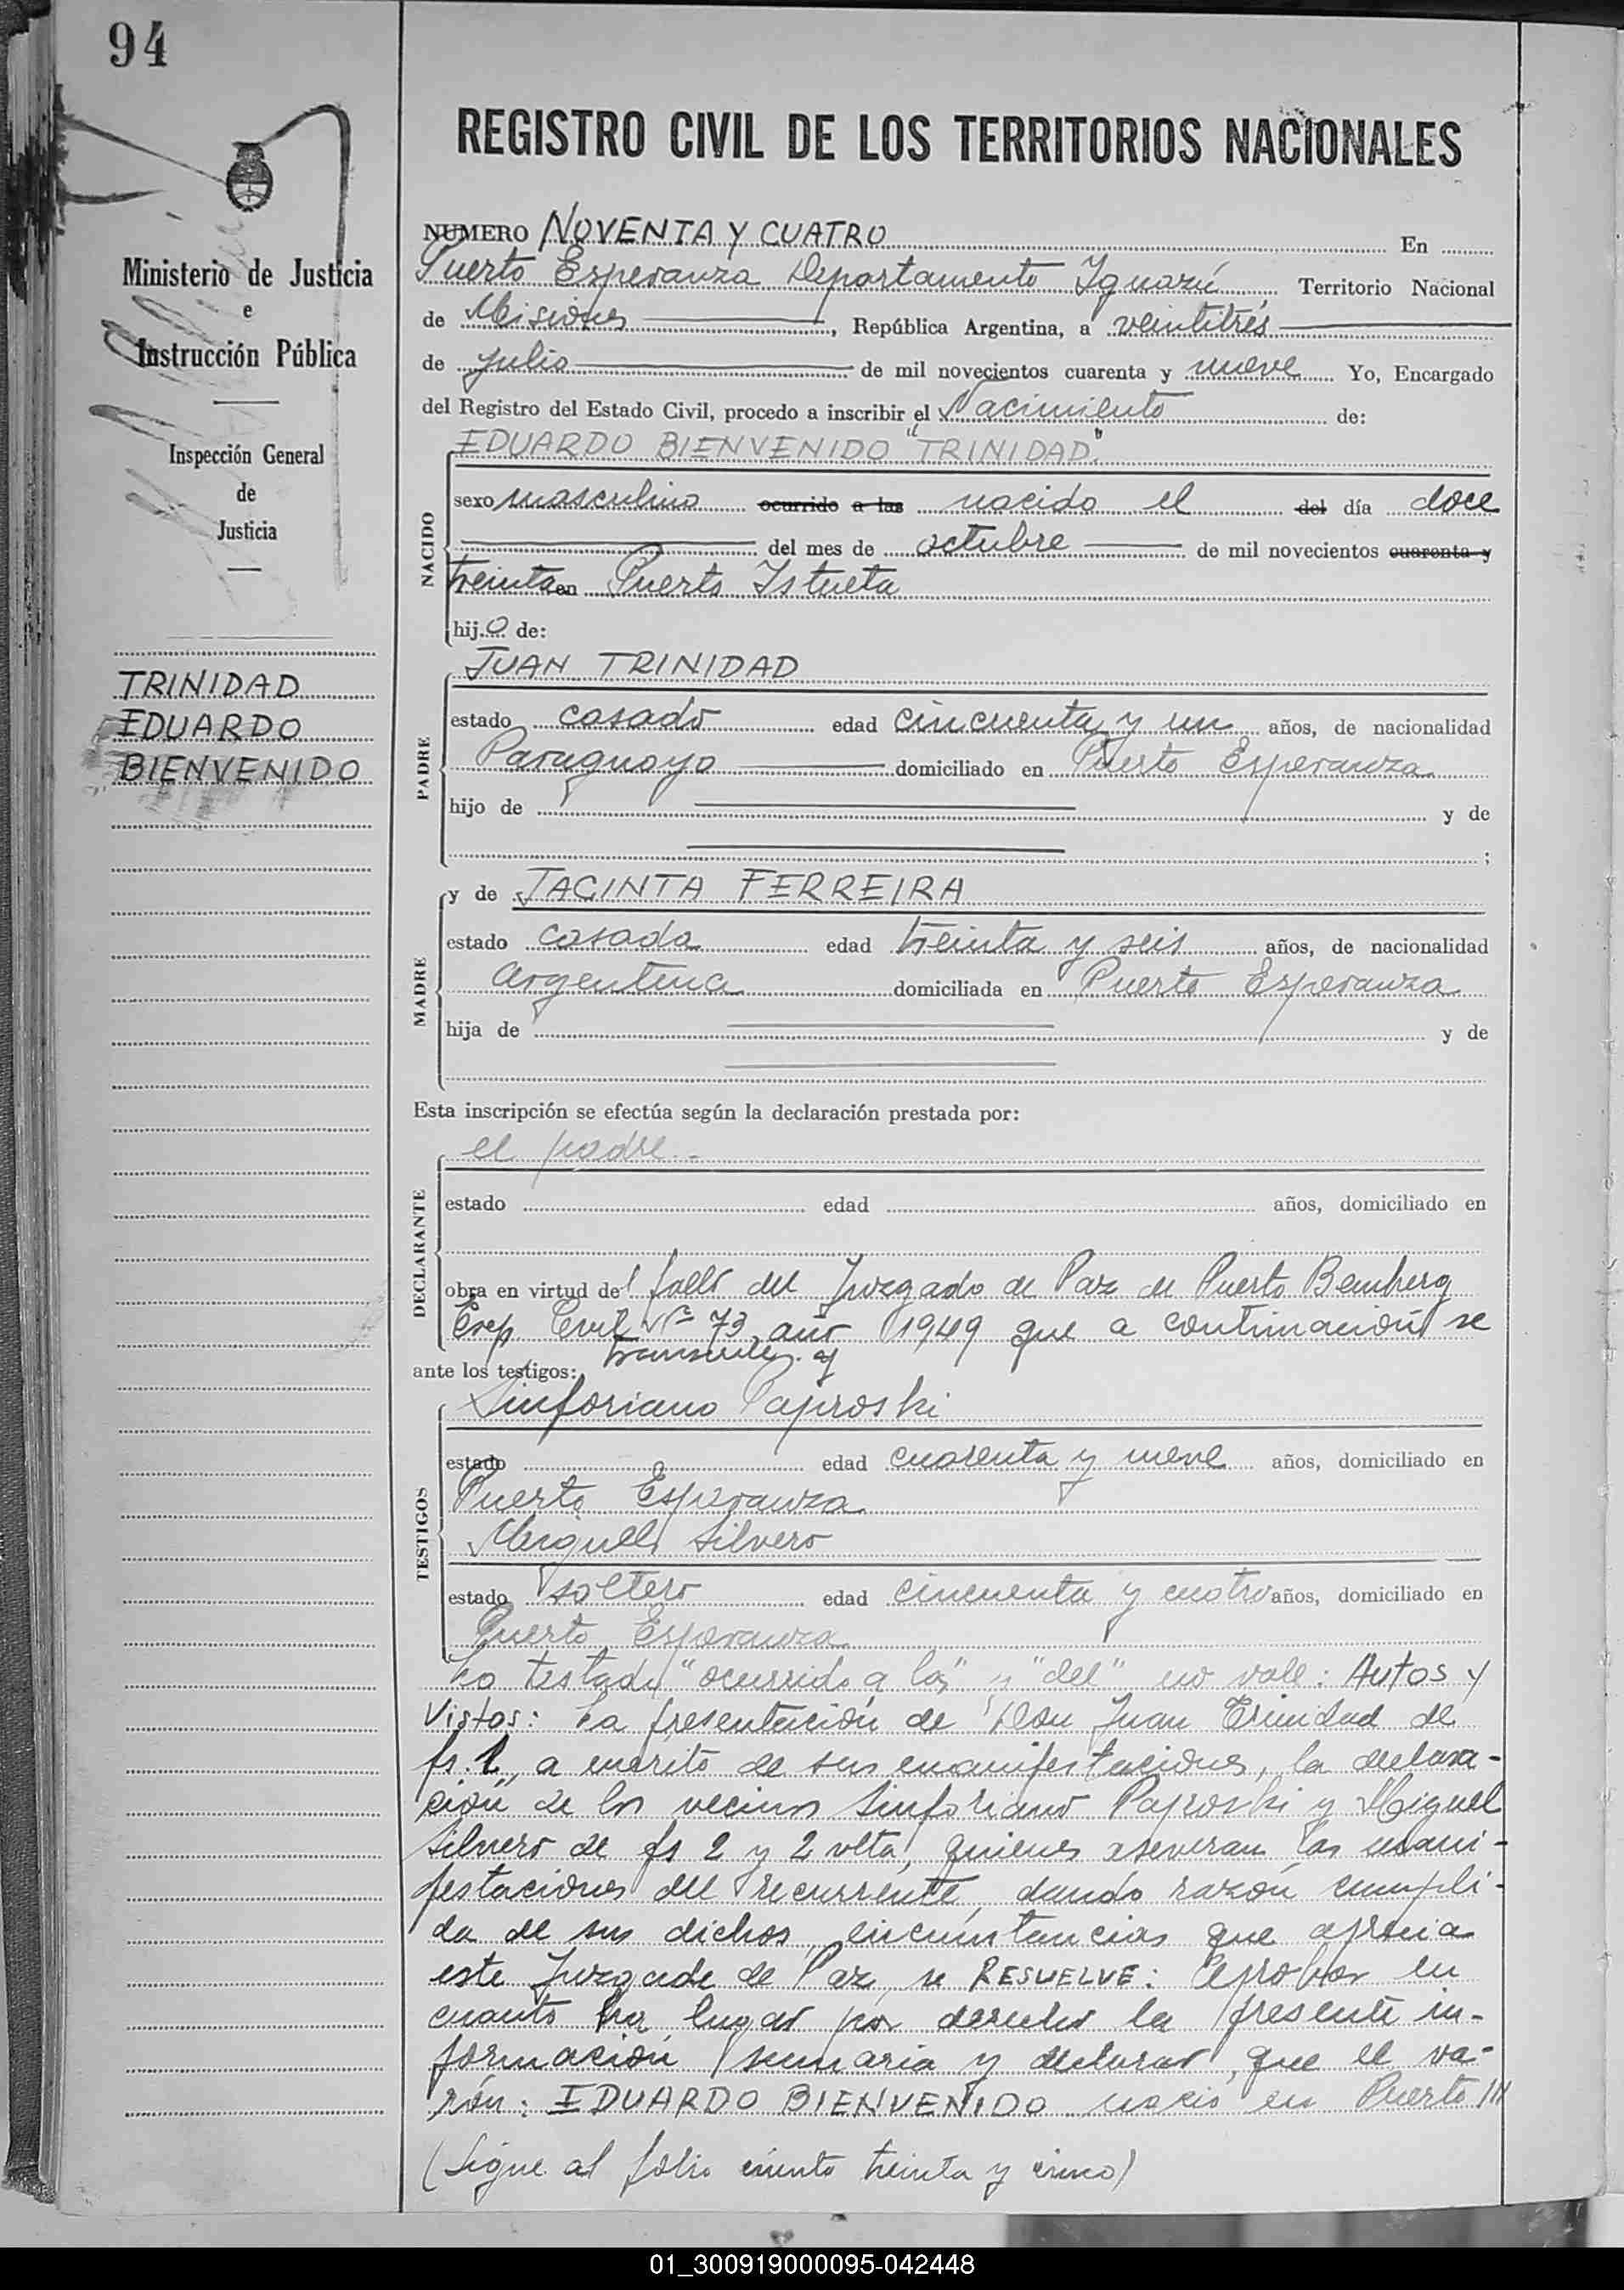 94
REGISTRO CIVIL DE LOS TERRITORIOS NACIONALES
Ministerio de Justicia
e
Instrucción Pública
Inspección General
de
Justicia
TRINIDAD
EDUARDO
BIENVENIDO
NUMERO NOVENTA Y CUATRO En
Puerto Esperanza Departamento Iguazú, Territorio Nacional
de Misiones, República Argentina, a veintitrés
de julio de mil novecientos cuarenta y nueve Yo, Encargado
del Registro del Estado Civil, procedo a inscribir el Nacimiento de:
EDUARDO BIENVENIDO "TRINIDAD".
NACIDO
sexo masculino ocurrido a las nacido el del día doce
del mes de octubre de mil novecientos cuarenta y
treinta en Puerto Istueta
hijo de:
JUAN TRINIDAD
PADRE
estado casado edad cincuenta y un años, de nacionalidad
Paraguayo domiciliado en Puerto Esperanza
hijo de y de
;
y de JACINTA FERREIRA
MADRE
estado casada edad treinta y seis años, de nacionalidad
argentina domiciliada en Puerto Esperanza
hija de y de
Esta inscripción se efectúa según la declaración prestada por:
el padre.-
DECLARANTE
estado edad años, domiciliado en
obra en virtud del fallo del Juzgado de Paz de Puerto Bemberg
Exp. Civil Nº 73, año 1949 que a continuación se
transcribe y
ante los testigos:
Sinforiano Paproski
TESTIGOS
estado edad cuarenta y nueve años, domiciliado en
Puerto Esperanza
Miguel Silvero
estado soltero edad cincuenta y cuatro años, domiciliado en
Puerto Esperanza
Lo testado "ocurrido a las" y "del" no vale: Autos y
Vistos: La presentación de Don Juan Trinidad de
fs. 1, a mérito de sus manifestaciones, la declara-
ción de los vecinos Sinforiano Paproski y Miguel
Silvero de fs 2 y 2 vlta, quienes aseveran las mani-
festaciones del recurrente, dando razón cumpli-
da de sus dichos, circunstancias que aprecia
este Juzgado de Paz, se RESUELVE: Aprobar en
cuanto ha lugar por derecho la presente in-
formación sumaria y declarar, que el va-
rón: EDUARDO BIENVENIDO nació en Puerto ///
(Sigue al folio ciento treinta y cinco)
01_300919000095-042448